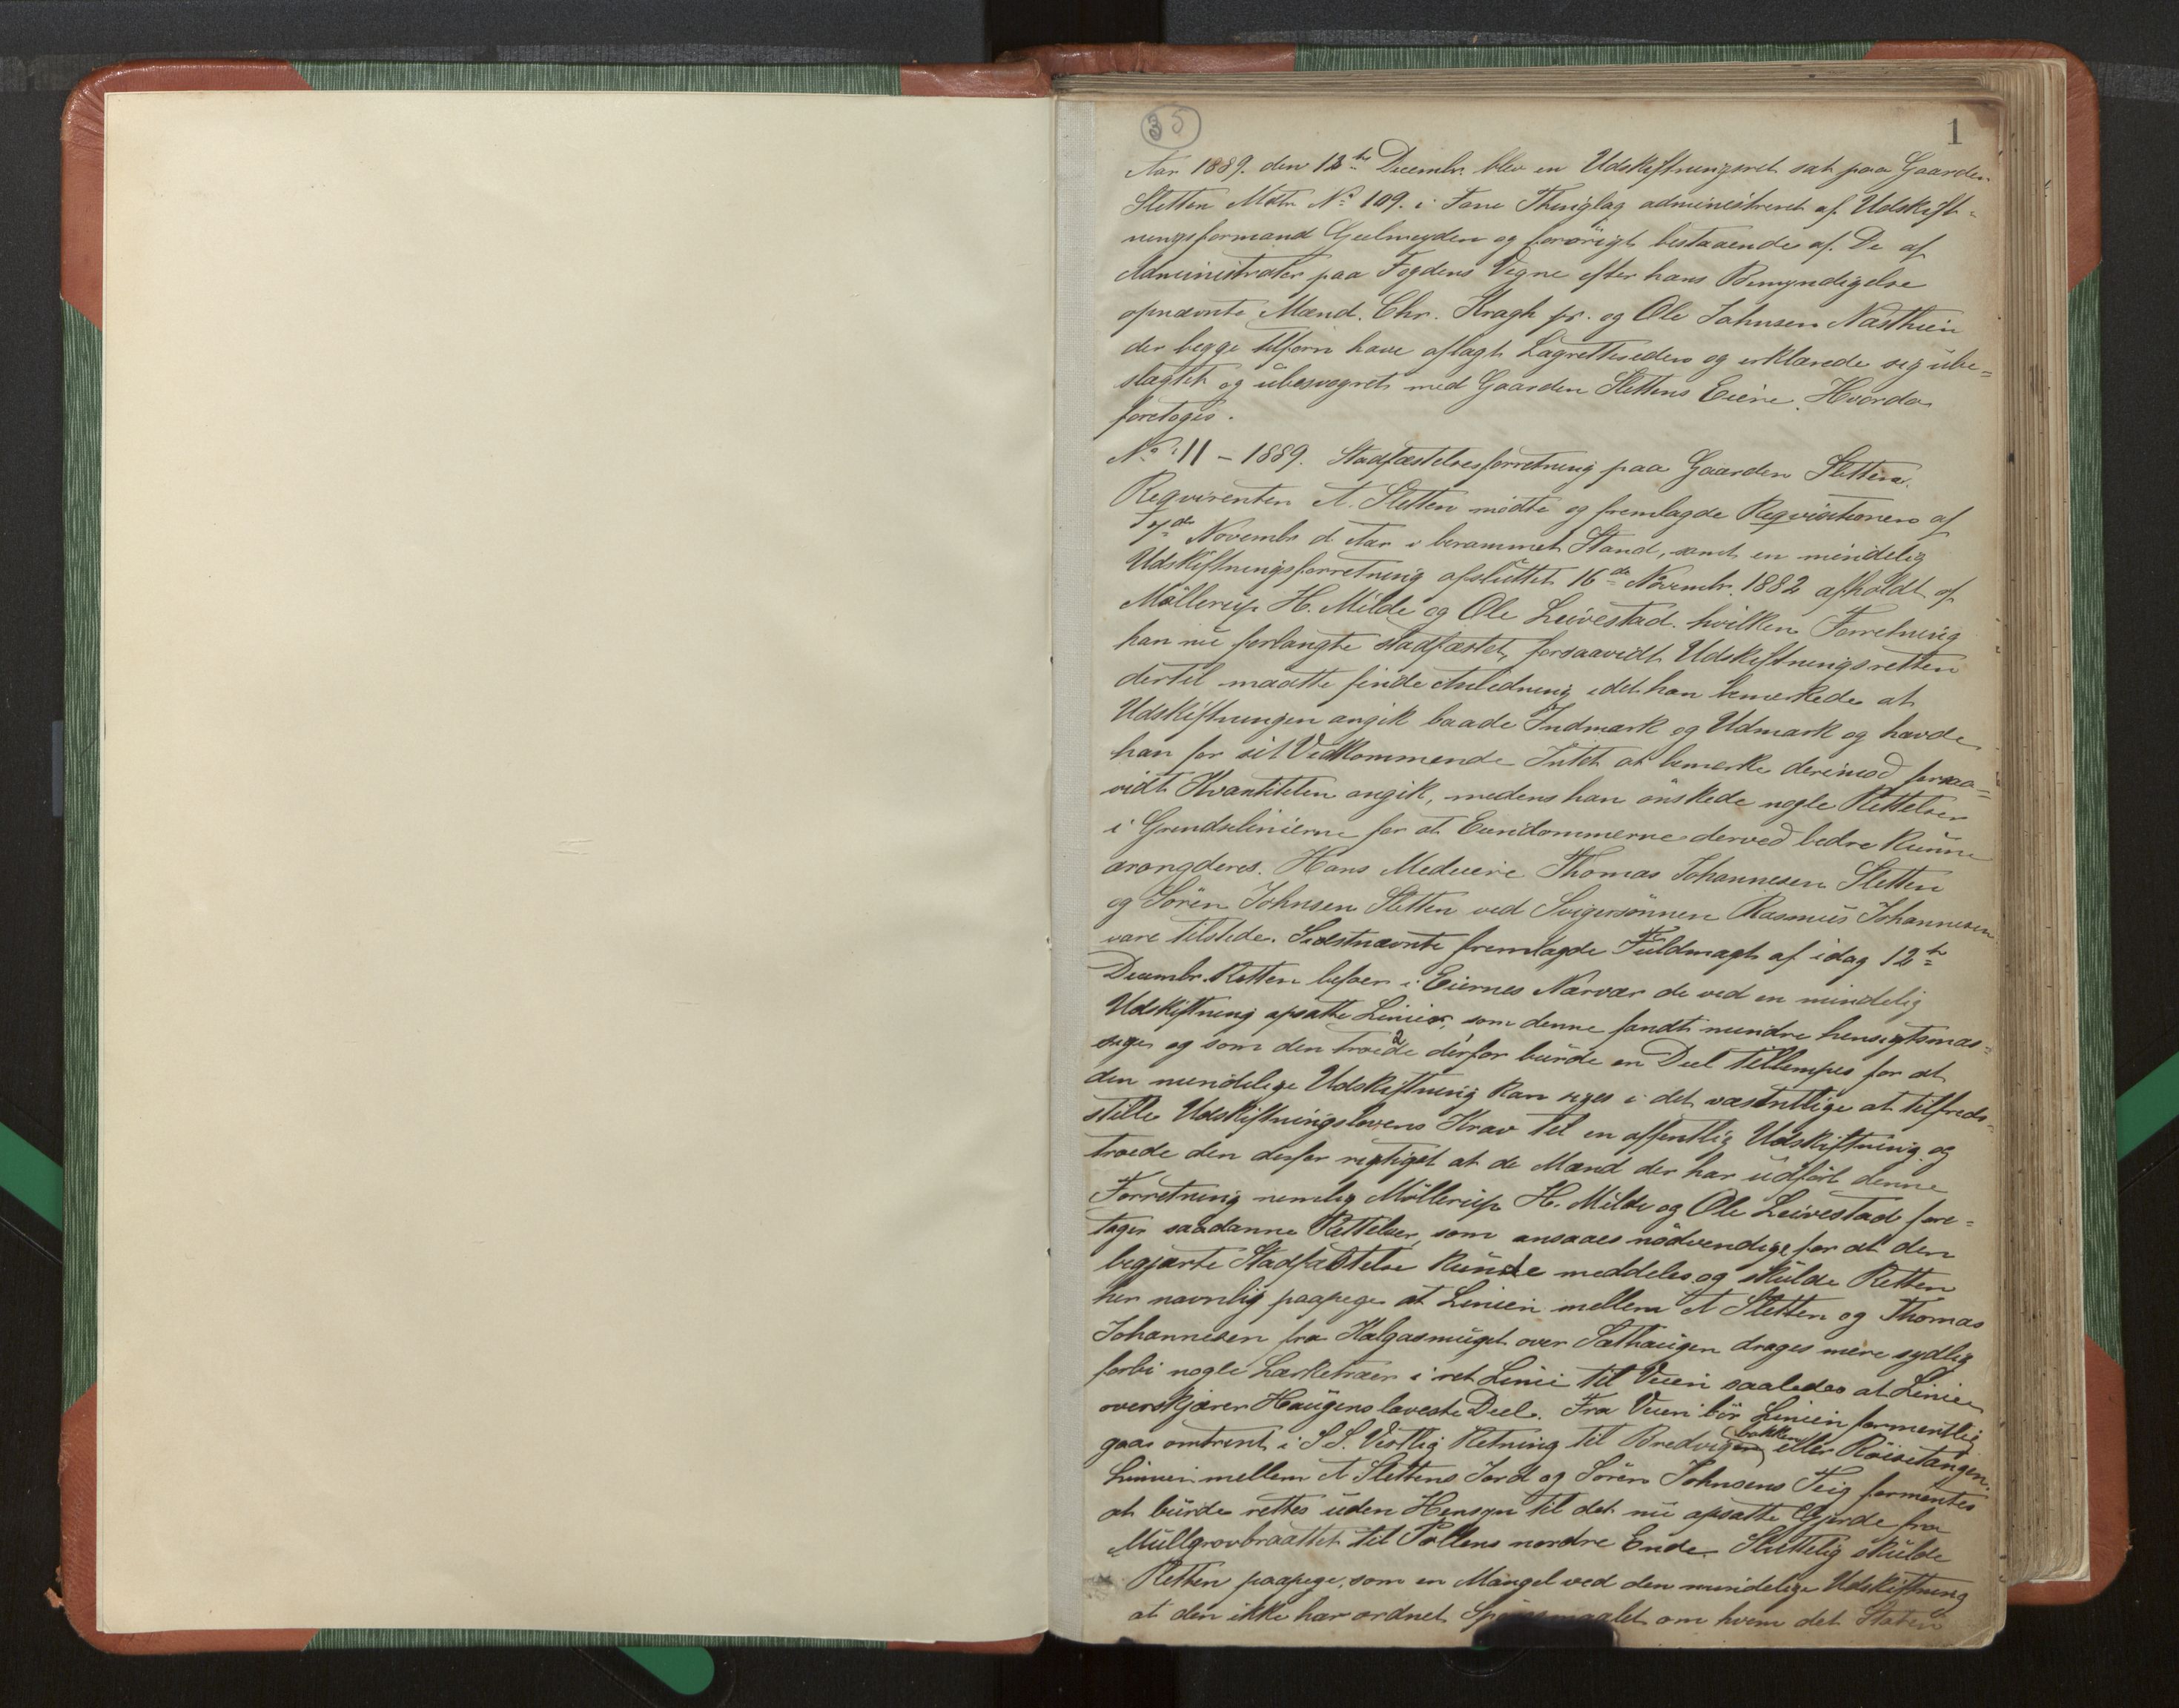 35
1
Aar 1889. den 12te Decembr. blev en Udskiftningsret sat paa Gaarden
Sletten Matr No 109. i Fane Thinglag administreret af Udskift-
ningsformand Geelmeyden og forøvrigt bestaaende af De af
Administrator paa Fogdens Vegne efter hans Bemyndigelse
opnævnte Mænd. Chr. Kragh jr. og Ole Johnsen Næsthein
der begge tilforn have aflagt Lagretteseden og erklærede sig ube-
slægtet og ubesvogret med Gaarden Slettens Eiere. Hvorda
foretoges.
No 11 - 1889. Stadfæstelsesforretning paa Gaarden Sletten.
Reqvirenten A. Sletten mødte og fremlagde Reqvisitionen af
7de Novembr d. Aar i berammet Stand, samt en mindelig
Udskiftningsforretning afsluttet 16de Novembr. 1882 afholdt af
Møllerup H. Milde og Ole Leivestad. hvilken Forretning
han nu forlangte stadfæstet, forsaavidt Udskiftningsretten
dertil maatte finde Anledning idet han bemerkede at
Udskiftningen angik baade Indmark og Udmark og havde
han for sit Vedkommende Intet at bemerke derimod forsaa-
vidt Kvantiteten angik, medens han ønskede nogle Rettelser
i Grændselinierne for at Eiendommerne derved bedre kunne
arangderes. Hans Medeiere Thomas Johannesen Sletten
og Søren Johnsen Sletten ved Svigersønnen Rasmus Johannesen
vare tilstede. Sidstnævnte fremlagde Fuldmagt af idag 12te
Decembr. Retten befoer i Eiernes Nærvær de ved en mindelig
Udskiftning opsatte Linier, som denne fandt mindre hensigtsmæs-
sige og som den troede derfor burde en Deel tillempes for at
den mindelige Udskiftning kan siges i det væsentlige at tilfreds-
stille Udskiftningslovens Krav til en offentlig Udskiftning og
troede den derfor rigtigst at de Mænd der har udført denne
Forretning nemlig Møllerup H. Milde og Ole Leivestad fore-
tager saadanne Rettelser, som ansaaes nødvendige for at den
begjærte Stadfæstelse kunde meddeles og skulde Retten
her navnlig paapege at Linien mellem A Sletten og Thomas
Johannesen fra Kalgasmuget over Sæthaugen drages mere sydlig
forbi nogle Lærketræer i ret Linie til Veien saaledes at Linien
overskjærer Haugens laveste Deel. Fra Veien bør Linien formentlig
gaae omtrent i S S. Vestlig Retning til Bredvigen bakken eller Røisetangen.
Linien mellem A Slettens Jord og Søren Johnsens Teig formentes
at burde rettes uden Hensyn til det nu opsatte Gjerde fra
Müllgrovbraattet til Pollens nordre Ende. Sluttelig skulde
Retten paapege, som en Mangel ved den mindelige Udskiftning
at den ikke har ordnet Spørsmaalet om hvem det Staten